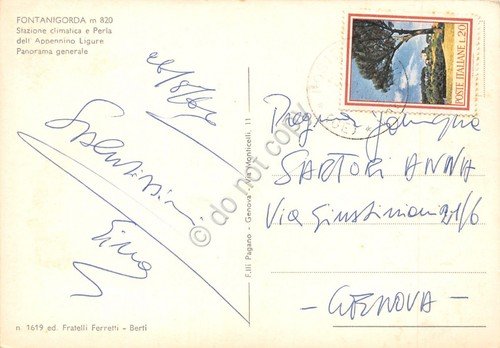 FONTANIGORDA m 820
Stazione climatica e Perla
dell'Appennino Ligure
Panorama generale
Gina
n. 1619 ed. Fratelli Ferretti - Berti
F.lli Pagano - Genova - Via Monticelli, 11
do not copy
POSTE ITALIANE L.20
SARTORI ANNA
Via Giustiniani 21/6
- GENOVA -